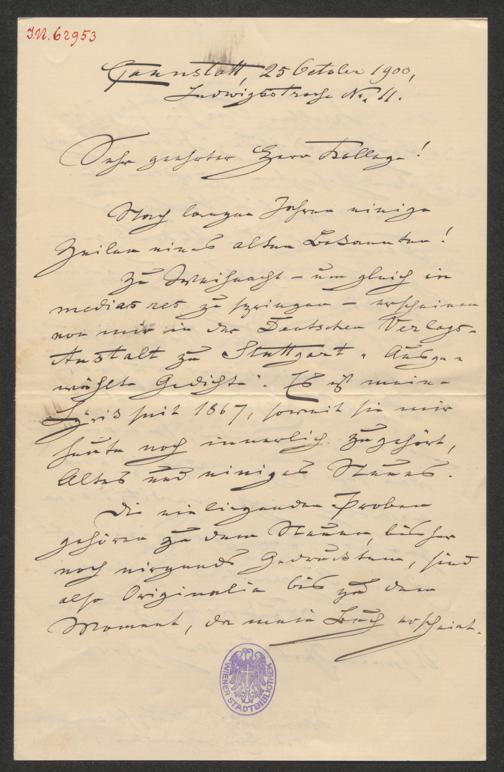 I.N. 62953
Cannstatt, 25 October 1900,
Ludwigstraße No. 11.
Sehr geehrter Herr Kollege!
Nach langen Jahren einige
Zeilen eines alten Bekannten!
Zu Weihnacht – um gleich in
medias res zu springen – erscheinen
von mir in der Deutschen Verlags-
Anstalt zu Stuttgart „Ausge-
wählte Gedichte“. Es ist meine
Lyrik seit 1867, soweit sie mir
heute noch innerlich zugehört,
Altes und einiges Neues.
Die einliegenden Proben
gehören zu dem Neuen, bisher
noch nirgends Gedruckten, sind
also Originalia bis zu dem
Moment, da mein Buch erscheint.
WIENER STADTBIBLIOTHEK